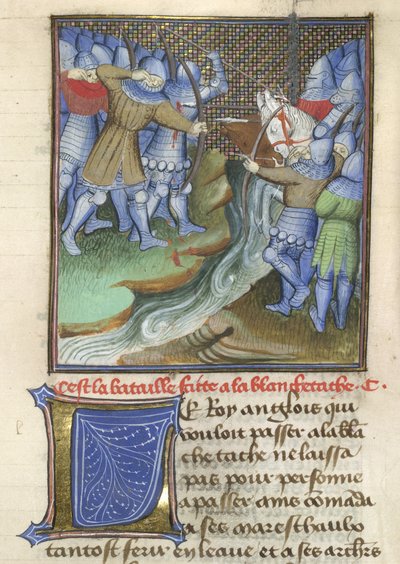 C'est la bataille faitte a la blanchetache. C.
Le Roy anglois qui
vouloit passer a la blā
che tache ne laissa
pas pour personne
a passer ains comāda
a ses mareschaulx
tantost ferir en leaue et a ses archrs